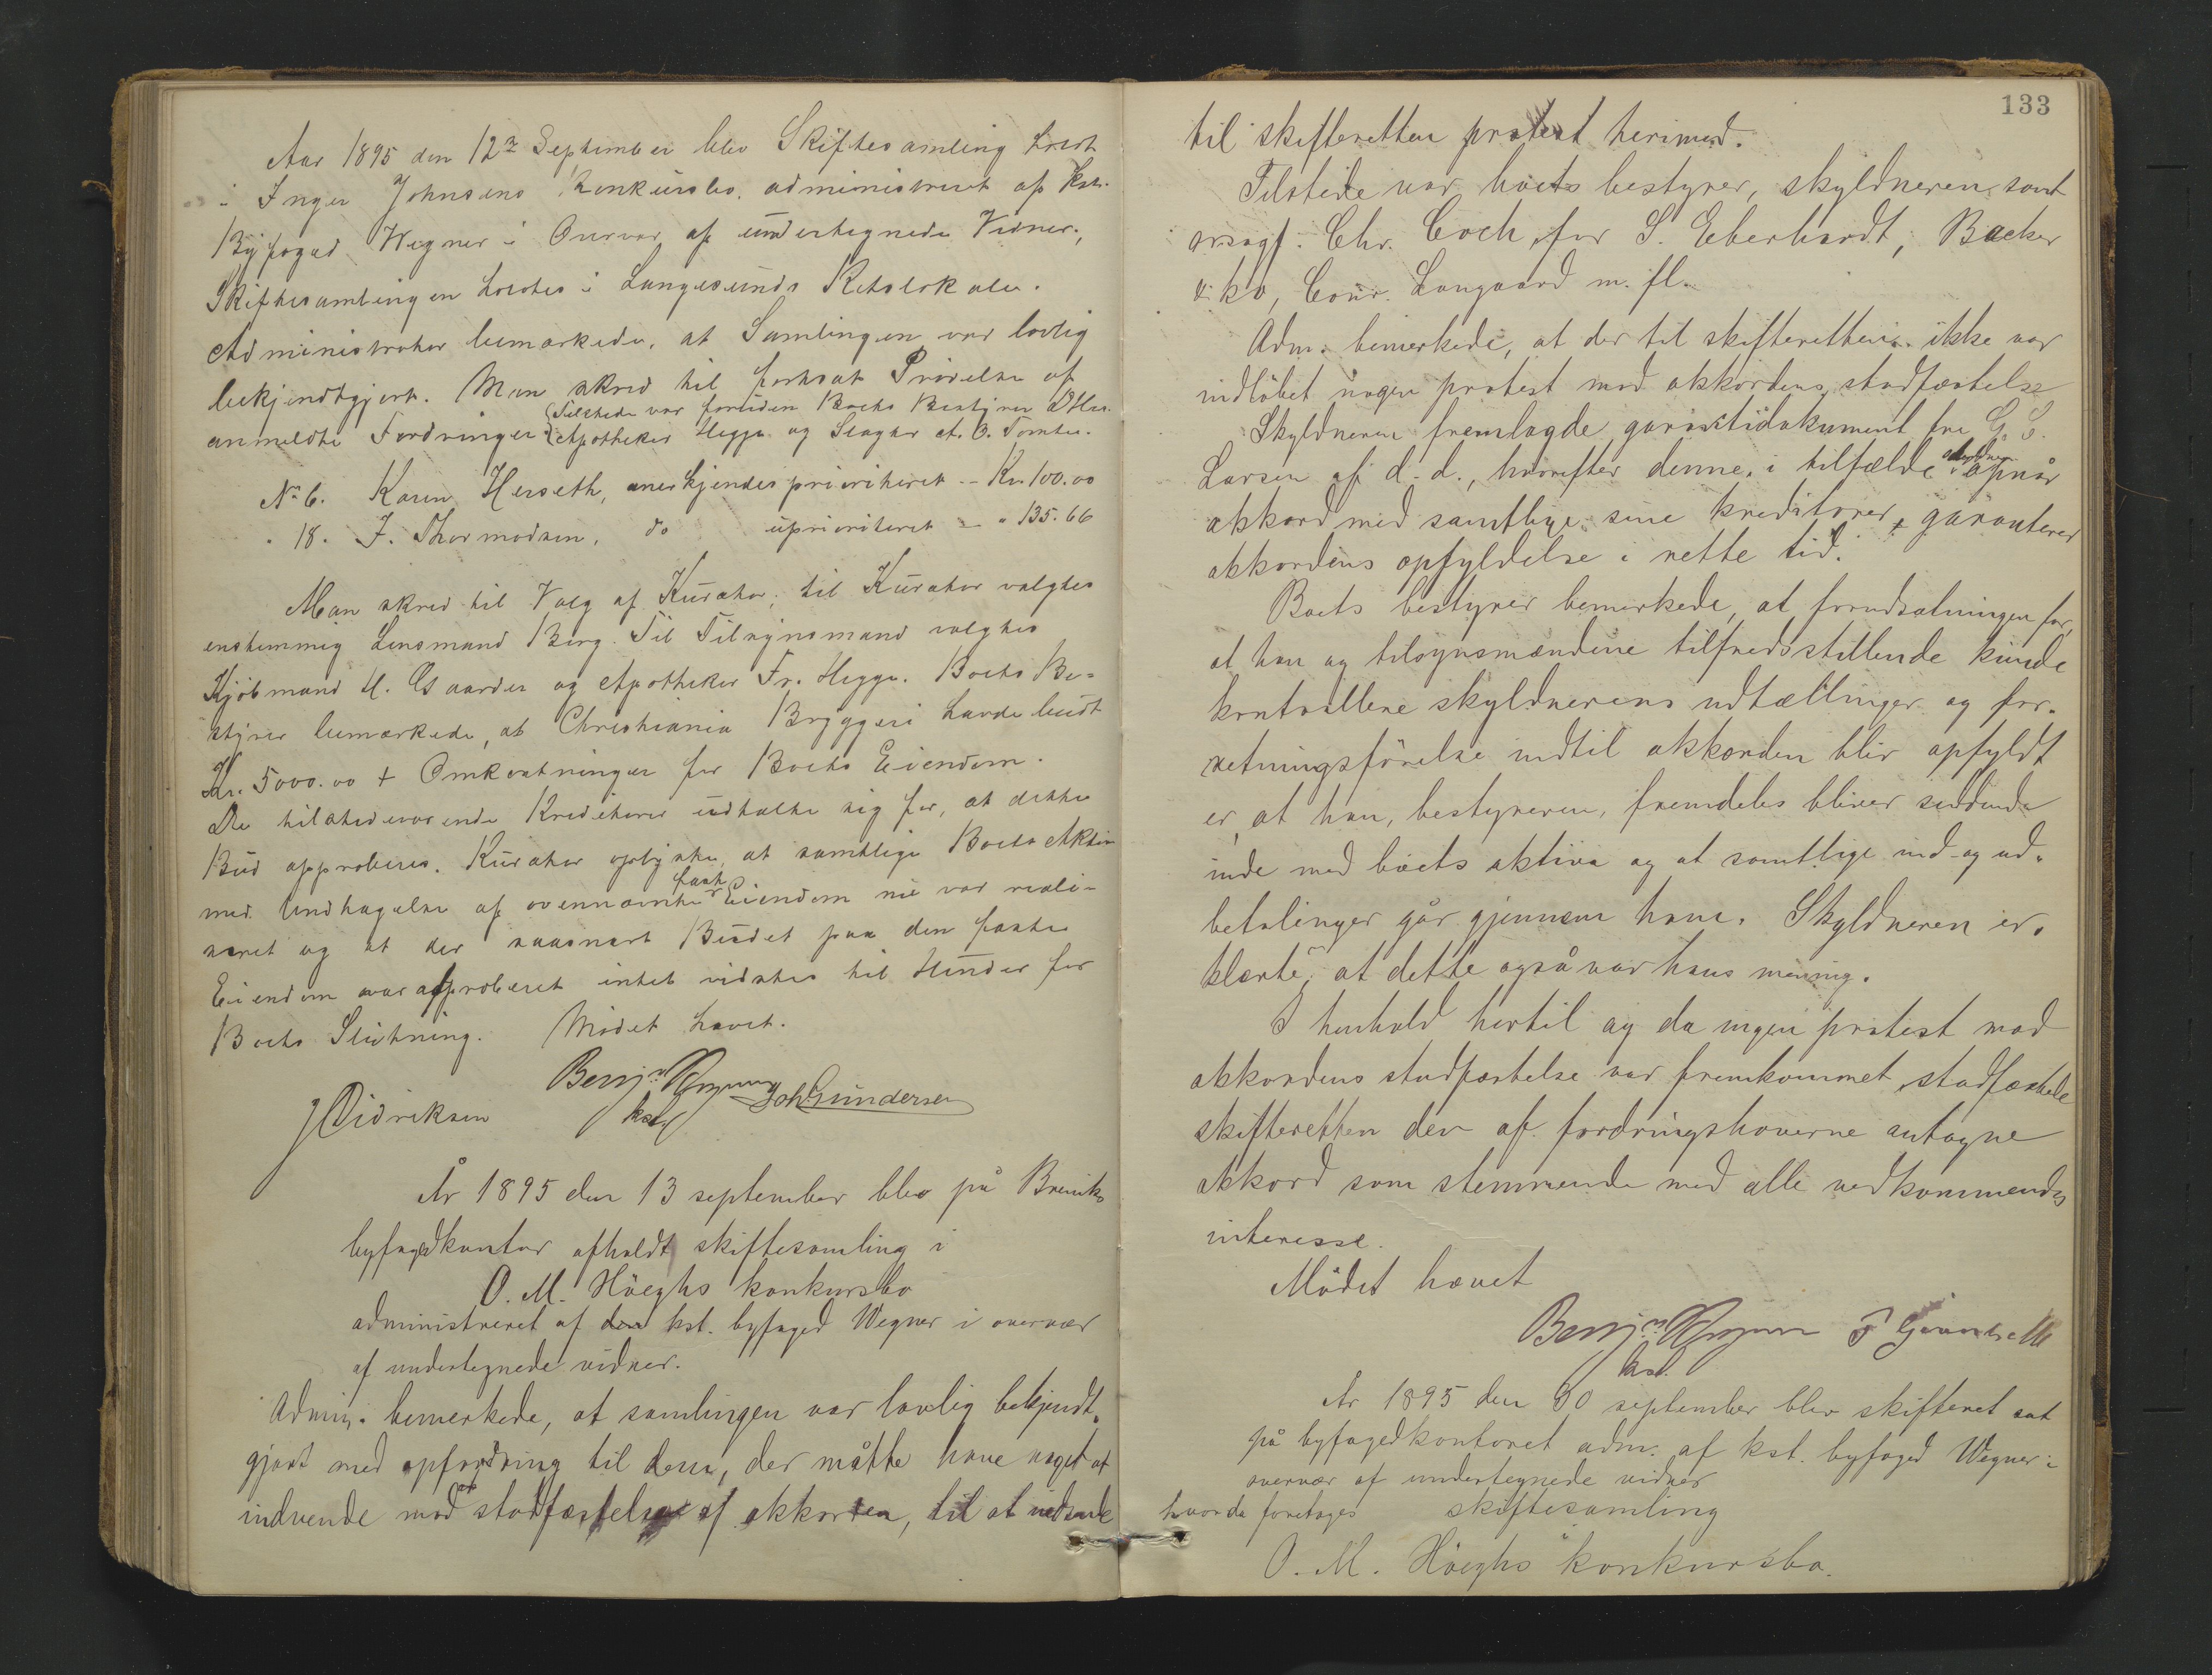 Aar 1895 den 12te September blev Skiftesamling holdt
i Inger Johnsens Konkursbo, administreret af kst.
Byfoged Wegner i Overvær af undertegnede Vidner.
Skiftesamlingen holdtes i Langesunds Retslokale.
Administrator bemærkede, at Samlingen var lovlig
bekjendtgjort. Man skred til fortsat Prøvelse af
Tilstede var foruden Boets Bestyrer
anmeldte Fordringer. Apotheker Hegge og Slagter A. O. Tomter.
No 6. Karen Herseth, anerkjendes prioriteret -- Kr. 100.00
" 18. J. Thormodsen, do uprioriteret - " 135.66
Man skred til Valg af Kurator; til Kurator valgtes
enstemmig Lensmand Berg. Til Tilsynsmænd valgtes
Kjøbmand H. Gaarder og Apotheker Fr. Hegge. Boets Be-
styrer bemærkede, at Christiania Bryggeri havde budt
Kr. 5000.00 + Omkostninger for Boets Eiendom.
De tilstedeværende Kreditorer udtalte sig for, at dette
Bud approberes. Kurator oplyste, at samtlige Boets Aktiva
med Undtagelse af ovennævnte faste Eiendom nu var reali-
seret og at der saasnart Budet paa den faste
Eiendom var approberet intet vidstes til Hinder for
Boets Slutning. Mødet hævet.
Benj. Wegner Joh Gundersen
J Didriksen kst.
År 1895 den 13 september blev på Breviks
byfogedkontor afholdt skiftesamling i
O. M. Höeghs konkursbo
administreret af den kst. byfoged Wegner i overvær
af undertegnede vidner.
Admin. bemerkede, at samlingen var lovlig bekjendt-
gjort med opfordring til dem, der måtte have noget at
indvende mod stadfæstelse af akkorden, til at indsende
133
til skifteretten protest herimod.
Tilstede var boets bestyrer, skyldneren samt
orsagf. Chr. Coch for S. Eberhardt, Backer
& ko, Conr. Langaard m. fl.
Adm. bemerkede, at der til skifteretten ikke var
indløbet nogen protest mod akkordens stadfæstelse
Skyldneren fremlagde garantidokument fra G. S.
Larsen af d. d., hvorefter denne, i tilfælde skyldneren opnår
akkord med samtlige sine kreditorer, garanterer
akkordens opfyldelse i rette tid.
Boets bestyrer bemerkede, at forudsætningen for,
at han og tilsynsmændene tilfredsstillende kunde
kontrollere skyldnerens udtællinger og for-
retningsførelse indtil akkorden blir opfyldt
er, at han, bestyreren, fremdeles bliver siddende
inde med boets aktiva og at samtlige ind- og ud-
betalinger går gjennem ham. Skyldneren er-
klærte, at dette også var hans mening.
I henhold hertil og da ingen protest mod
akkordens stadfæstelse var fremkommet, stadfæstede
skifteretten den af fordringshaverne antagne
akkord som stemmende med alle vedkommendes
interesse.
Mödet hævet
Benj. Wegner
kst.
År 1895 den 30 september blev skifteret sat
på byfogedkontoret adm. af kst. byfoged Wegner i
overvær af undertegnede vidner
hvorda foretoges skiftesamling
O. M. Höeghs konkursbo.